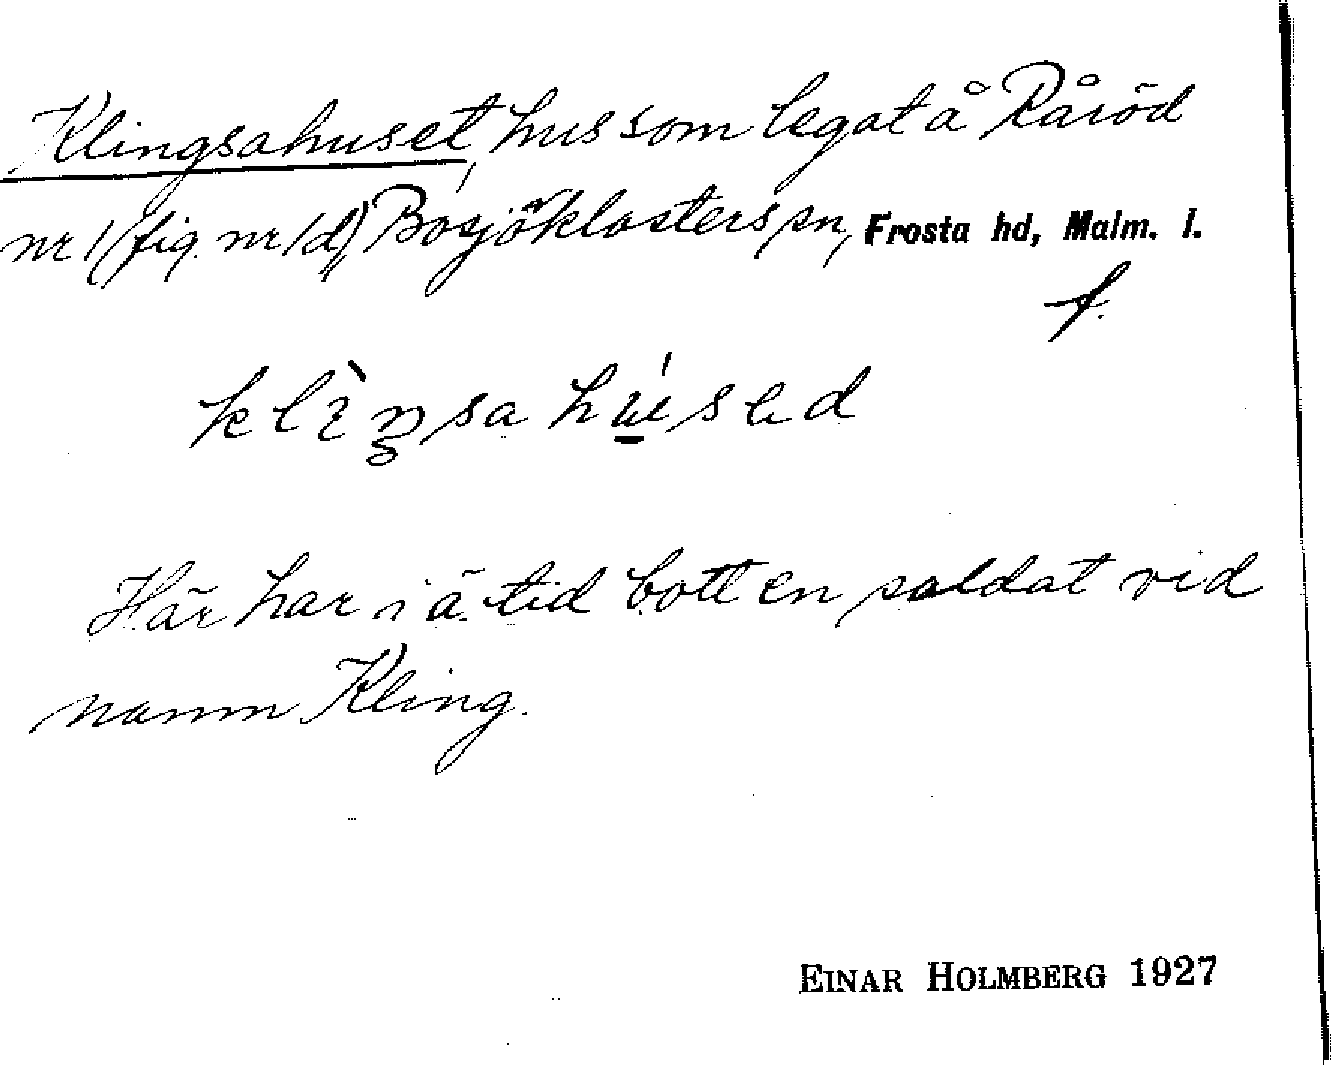 Klingsahuset, hus som legat å Råröd
nr 1 (fig. nr 1d), Bosjöklosters sn, Frosta hd, Malm. l.
f.
Här har i ä. tid bott en soldat vid
namn Kling.
EINAR HOLMBERG 1927